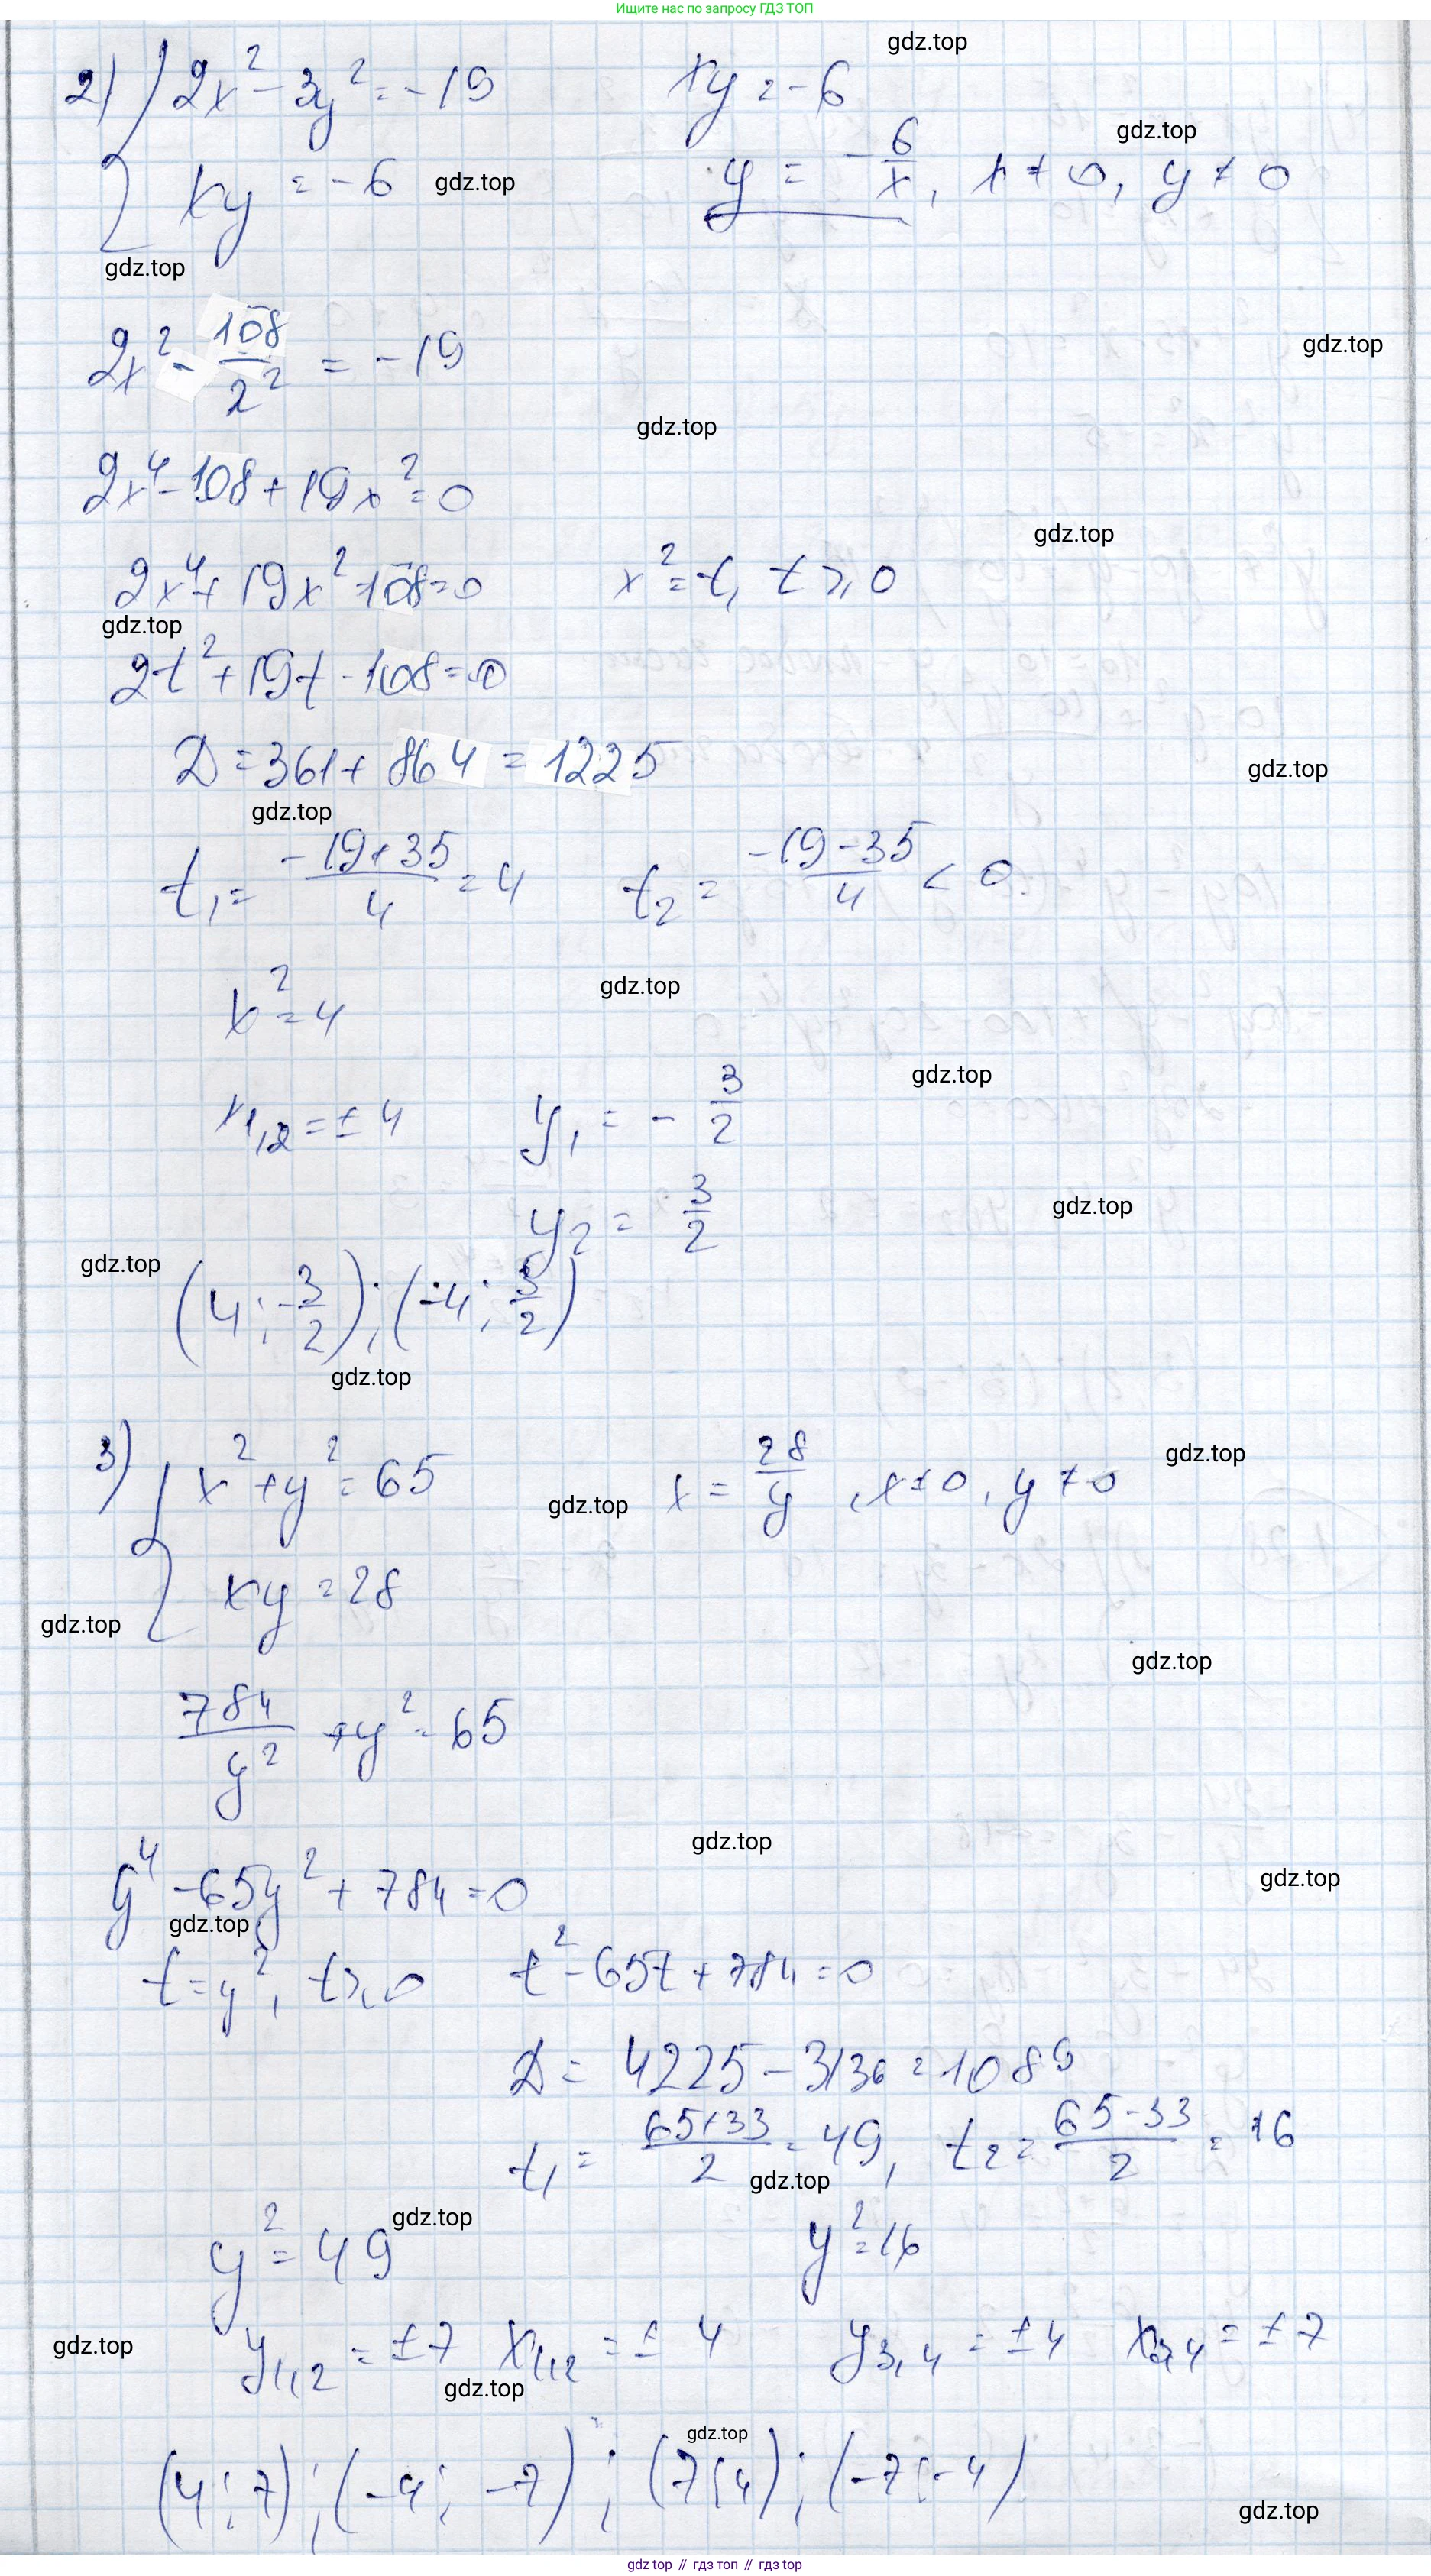 Ищите нас по запросу ГДЗ ТОП
gdz.top
2) { 2x² - 3y² = -19
xy = -6
xy = -6
y = -6/x, x ≠ 0, y ≠ 0
gdz.top
gdz.top
gdz.top
2x² - 108/2² = -19
gdz.top
gdz.top
2x⁴ - 108 + 19x² = 0
gdz.top
2x⁴ + 19x² - 108 = 0 x² = t, t ≥ 0
gdz.top
2t² + 19t - 108 = 0
D = 361 + 864 = 1225
gdz.top
gdz.top
t₁ = (-19+35)/4 = 4 t₂ = (-19-35)/4 < 0
gdz.top
x² = 4
gdz.top
x₁,₂ = ± 4 y₁ = - 3/2
gdz.top
y₂ = 3/2
gdz.top
(4; -3/2); (-4; 3/2)
gdz.top
3) { x² + y² = 65 x = 28/y, x ≠ 0, y ≠ 0
gdz.top
gdz.top
xy = 28
gdz.top
gdz.top
784/y² + y² = 65
gdz.top
gdz.top
y⁴ - 65y² + 784 = 0
gdz.top
t = y², t ≥ 0 t² - 65t + 784 = 0
D = 4225 - 3136 = 1089
t₁ = (65+33)/2 = 49, t₂ = (65-33)/2 = 16
gdz.top
gdz.top
y² = 49 y² = 16
gdz.top
y₁,₂ = ±7 x₁,₂ = ± 4 y₃,₄ = ±4 x₃,₄ = ±7
gdz.top
gdz.top
(4; 7); (-4; -7); (7; 4); (-7; -4)
gdz.top
gdz top // гдз топ // gdz top